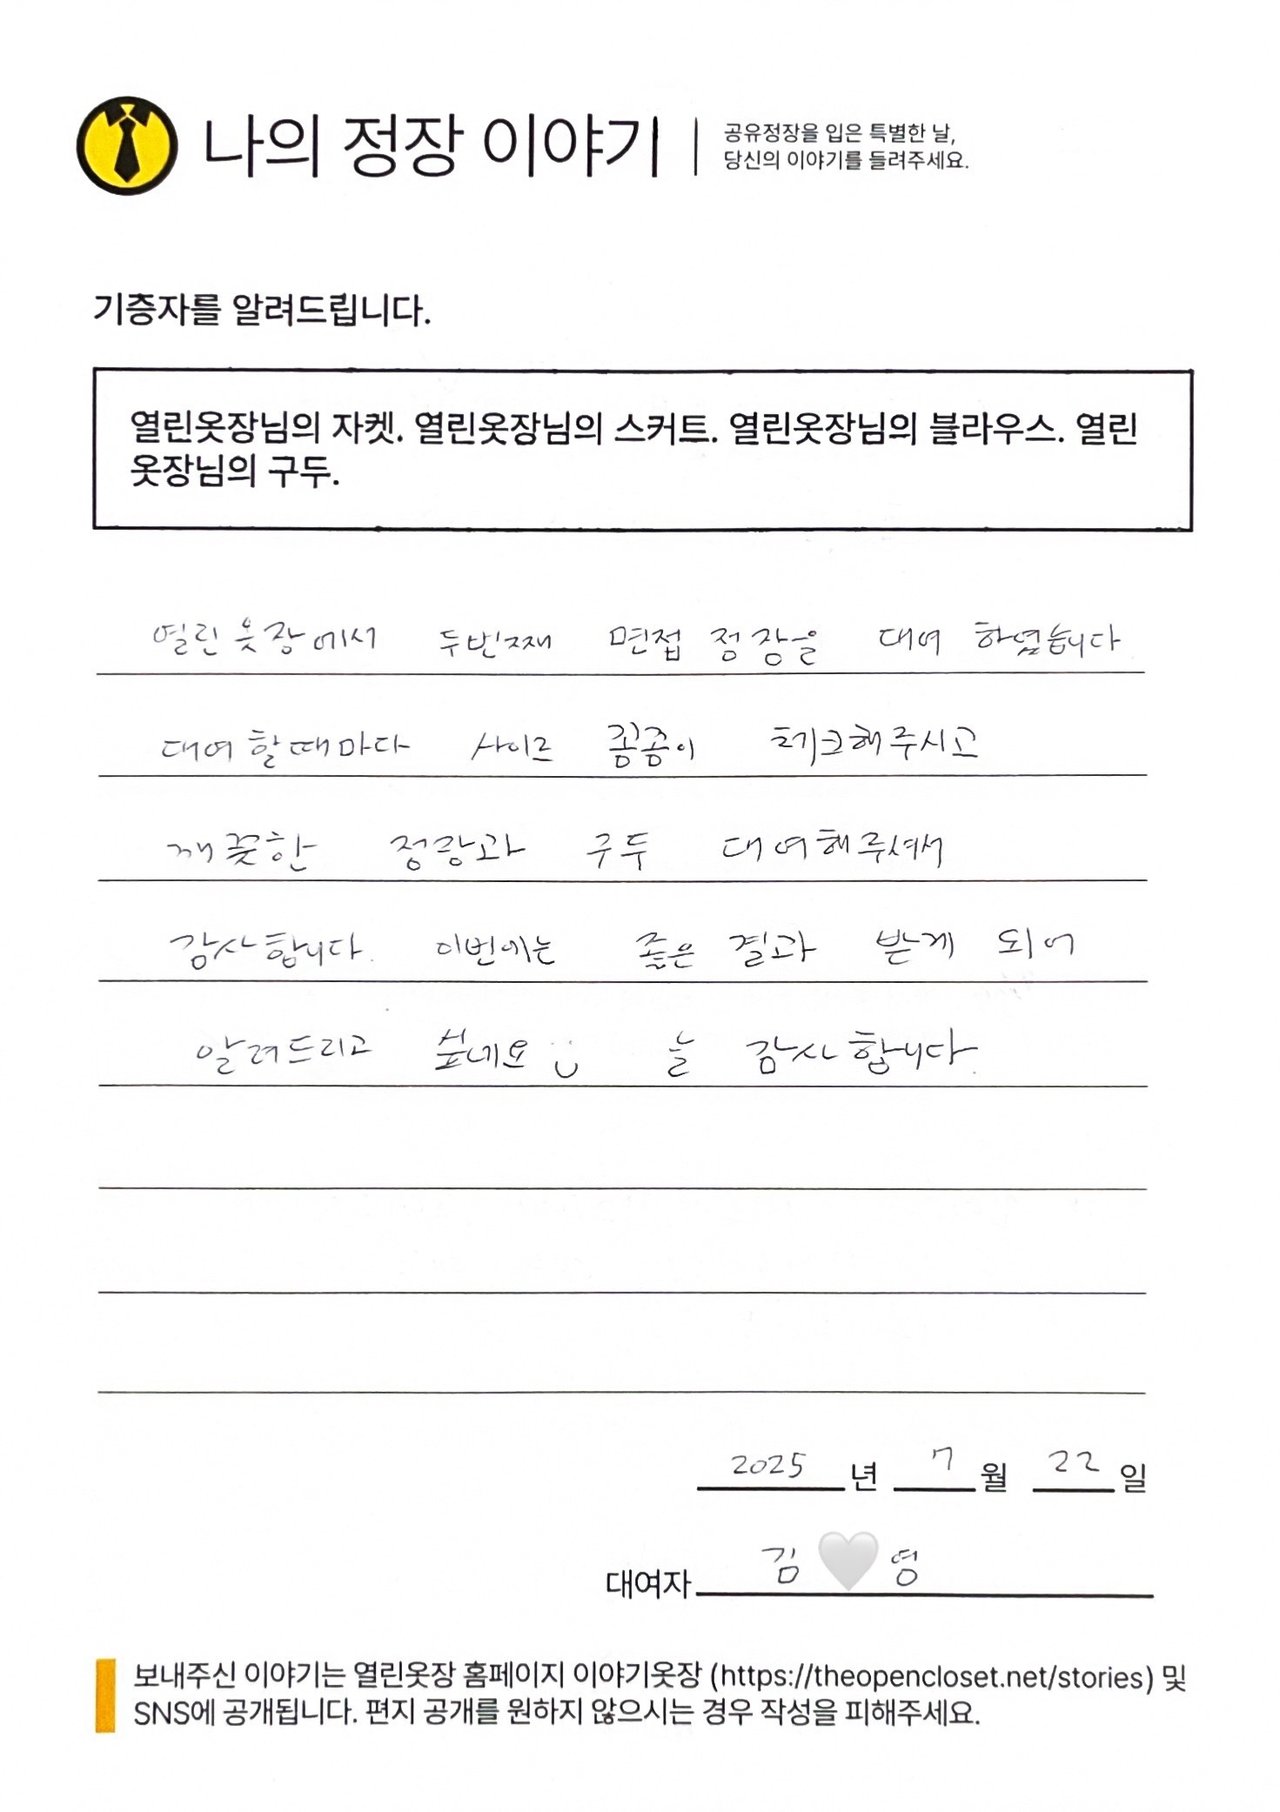 나의 정장 이야기
공유정장을 입은 특별한 날,
당신의 이야기를 들려주세요.
기증자를 알려드립니다.
열린옷장님의 자켓. 열린옷장님의 스커트. 열린옷장님의 블라우스. 열린
옷장님의 구두.
열린옷장에서 두번째 면접 정장을 대여 하였습니다
대여할때마다 사이즈 꼼꼼이 체크해주시고
깨끗한 정장과 구두 대여해주셔서
감사합니다. 이번에는 좋은 결과 받게 되어
알려드리고 싶네요 늘 감사합니다.
2025 년 7 월 22 일
대여자 김 영
보내주신 이야기는 열린옷장 홈페이지 이야기옷장 (https://theopencloset.net/stories) 및
SNS에 공개됩니다. 편지 공개를 원하지 않으시는 경우 작성을 피해주세요.